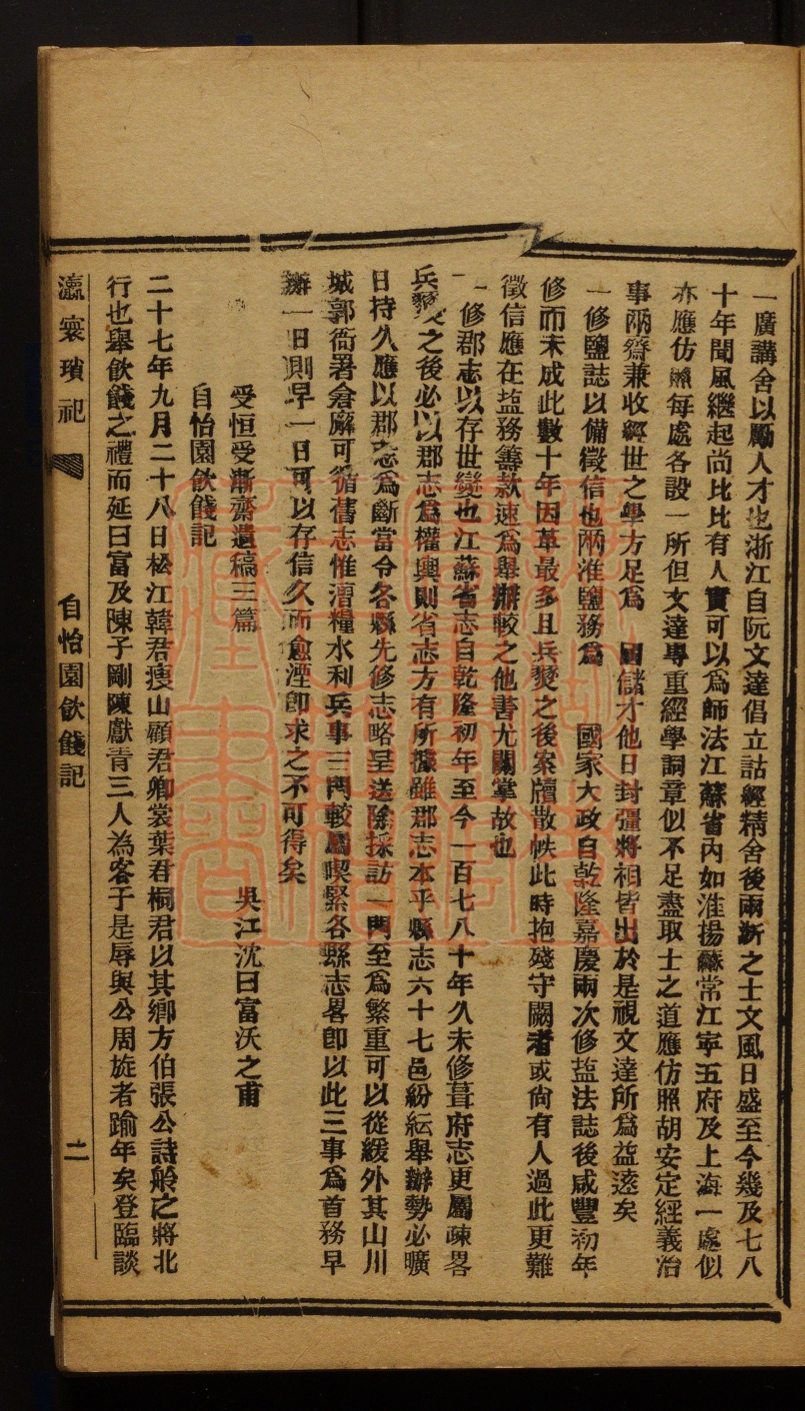 一廣講舍以勵人才也浙江自阮文達倡立詁經精舍後兩浙之士文風日盛至今幾及七八
十年聞風繼起尚比比有人實可以爲師法江蘇省內如淮揚蘇常江寧五府及上海一處似
亦應仿照每處各設一所但文達專重經學詞章似不足盡取士之道應仿照胡安定經義治
事兩齋兼收經世之學方足爲　國儲才他日封疆將相皆出於是視文達所爲益遠矣
一修鹽誌以備徵信也兩淮鹽務爲　國家大政自乾隆嘉慶兩次修盐法誌後咸豐初年
修而未成此數十年因革最多且兵燹之後案牘散帙此時抱殘守闕者或尙有人過此更難
徵信應在盐務籌款速爲舉辦較之他書尤關掌故也
一修郡志以存世變也江蘇省志自乾隆初年至今一百七八十年久未修葺府志更屬疎畧
兵燹之後必以郡志爲權輿則省志方有所據雖郡志本乎縣志六十七邑紛紜舉辦勢必曠
日持久應以郡志爲斷當令各縣先修志略呈送除採訪一門至爲繁重可以從緩外其山川
城郭衙署倉廒可循舊志惟漕糧水利兵事三門較屬喫緊各縣志畧卽以此三事爲首務早
辦一日則早一日可以存信久而愈湮卽求之不可得矣
受恒受漸齋遺稿三篇　吳江沈曰富沃之甫
自怡園飲餞記
二十七年九月二十八日松江韓君瘦山顧君卿裳葉君桐君以其鄉方伯張公詩舲之將北
行也舉飲餞之禮而延曰富及陳子剛陳獻青三人為客于是辱與公周旋者踰年矣登臨談
瀛寰瑣紀　自怡園飲餞記　二